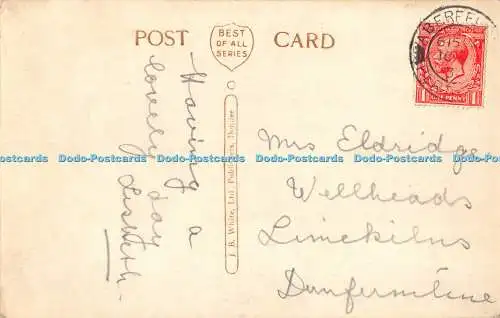 POST CARD
BEST
OF ALL
SERIES
ABERFEL
615
ONE PENNY
Having a
lovely day
J. B. White, Ltd. Publishers, Dundee
Mrs Eldridge
Wellheads
Limekilns
Dunfermline
Dodo-Postcards Dodo-Postcards Dodo-Postcards Dodo-Postcards Dodo-Postcards Dodo-Postcards